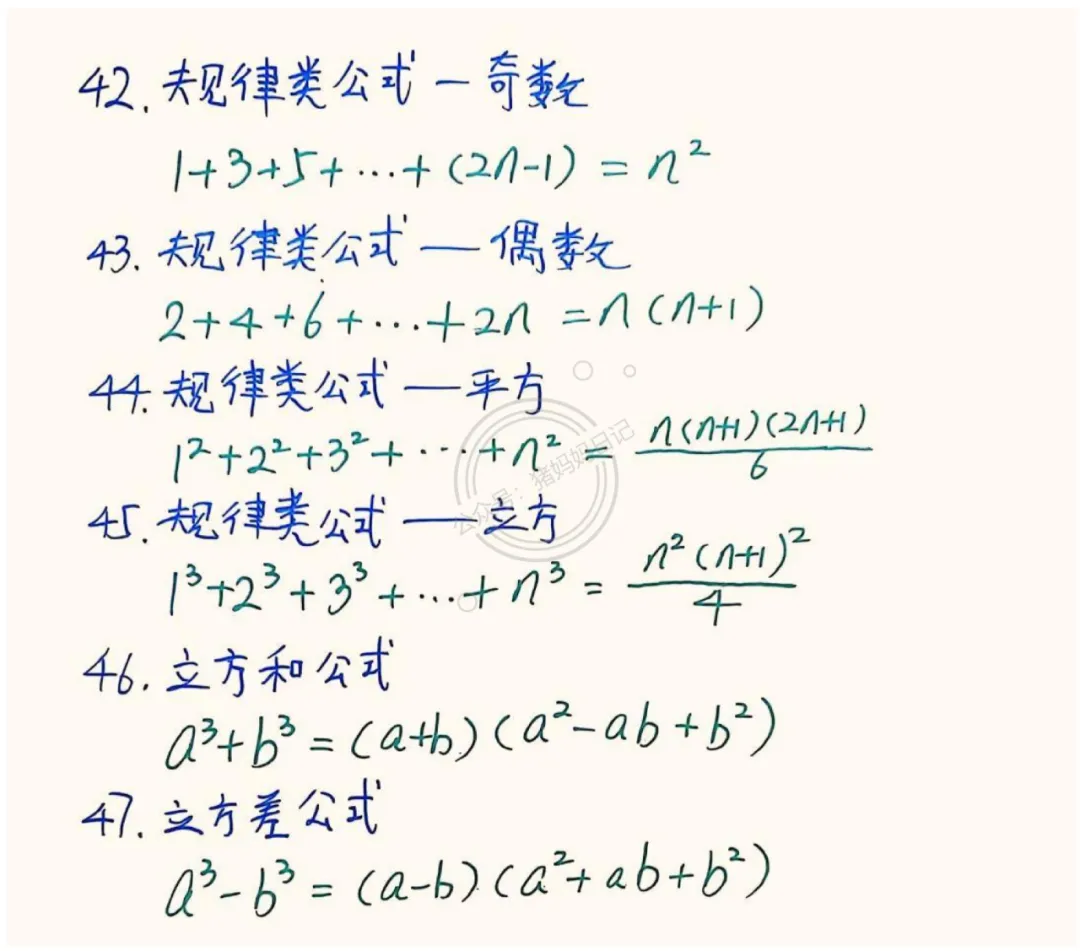 42. 规律类公式 — 奇数
1+3+5+···+(2n-1) = n²
43. 规律类公式 — 偶数
2+4+6+···+2n = n(n+1)
44. 规律类公式 — 平方
1²+2²+3²+···+n² = n(n+1)(2n+1)/6
45. 规律类公式 — 立方
1³+2³+3³+···+n³ = n²(n+1)²/4
46. 立方和公式
a³+b³ = (a+b)(a²-ab+b²)
47. 立方差公式
a³-b³ = (a-b)(a²+ab+b²)
公众号：猪妈妈日记